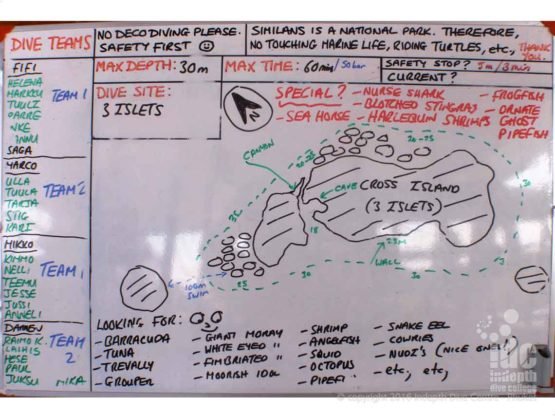 DIVE TEAMS
NO DECO DIVING PLEASE.
SAFETY FIRST
SIMILANS IS A NATIONAL PARK. THEREFORE,
NO TOUCHING MARINE LIFE, RIDING TURTLES, etc., THANK YOU.
MAX DEPTH: 30m
MAX TIME: 60min/50bar
SAFETY STOP? 5m/3min
CURRENT?
DIVE SITE:
3 ISLETS
SPECIAL?
- NURSE SHARK
- FROGFISH
- BLOTCHED STINGRAY
- ORNATE GHOST PIPEFISH
- SEA HORSE
- HARLEQUIN SHRIMPS
FIFI
HELENA
MARKKU
TUULI
NKE
TEAM 1
SAGA
MARCO
ULLA
TUULA
TARJA
STIG
KARI
TEAM 2
MIKKO
KIMMO
NELLI
TEEMU
JESSE
JUSSI
ANNELI
TEAM 1
DAMIEN
RAIMO K.
LAIHIS
HESE
PAUL
JUKSU
MIKA
TEAM 2
20-25
20-25
CANYON
CAVE
CROSS ISLAND
(3 ISLETS)
30
18
23M
WALL
30
30
25
100m
SWIM
LOOKING FOR:
- BARRACUDA
- TUNA
- TREVALLY
- GROUPER
- GIANT MORAY
- WHITE EYED "
- FIMBRIATED "
- MOORISH IDOL
- SHRIMP
- ANGELFISH
- SQUID
- OCTOPUS
- PIPEFI
- SNAKE EEL
- COWRIES
- NUDI'S (NICE ONES!)
- etc, etc
idc
indepth
dive college